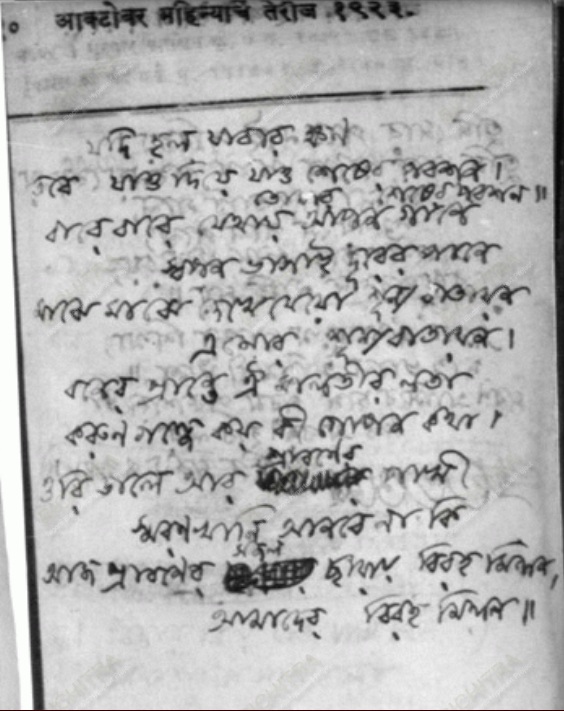 ० आक्टोबर महिन्याचें तेरीज १९२२.
যদি হল যাবার ক্ষণ
তবে যাও দিয়ে যাও শেষের পরশন।
তোমার শেষের পরশন॥
বারে বারে যেথায় আপন গানে
স্বপন ভাসাই দূরের পানে
মাঝে মাঝে দেখে যেয়ো শূন্য বাতায়ন
এ মোর শূন্য বাতায়ন।
বনের প্রান্তে ঐ মালতীর লতা
করুণ গন্ধে কয় কী গোপন কথা।
ওরি ডালে আর শ্রাবণের পাখী
স্মরণখানি আনবে না কি
আজ শ্রাবণের সজল ছায়ায় বিরহ মিলন,
আমাদের বিরহ মিলন॥